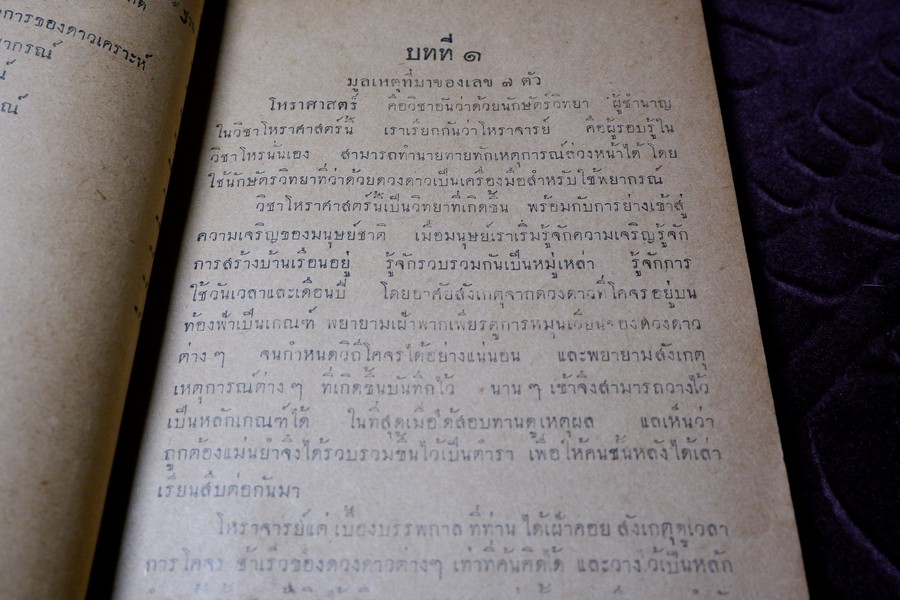 การของดาวเคราะห์
ากรณ์
ณ์
บทที่ ๑
มูลเหตุที่มาของเลข ๗ ตัว
โหราศาสตร์ คือวิชาอันว่าด้วยนักษัตร์วิทยา ผู้ชำนาญ
ในวิชาโหราศาสตร์นี้ เราเรียกกันว่าโหราจารย์ คือผู้รอบรู้ใน
วิชาโหรนั่นเอง สามารถทำนายทายทักเหตุการณ์ล่วงหน้าได้ โดย
ใช้นักษัตรวิทยาที่ว่าด้วยดวงดาวเป็นเครื่องมือสำหรับใช้พยากรณ์
วิชาโหราศาสตร์นี้เป็นวิทยาที่เกิดขึ้น พร้อมกับการย่างเข้าสู่
ความเจริญของมนุษย์ชาติ เมื่อมนุษย์เราเริ่มรู้จักความเจริญรู้จัก
การสร้างบ้านเรือนอยู่ รู้จักรวบรวมกันเป็นหมู่เหล่า รู้จักการ
ใช้วันเวลาและเดือนปี โดยอาศัยสังเกตุจากดวงดาวที่โคจรอยู่บน
ท้องฟ้าเป็นเกณฑ์ พยายามเฝ้าพากเพียรดูการหมุนเวียนของดวงดาว
ต่างๆ จนกำหนดวิถีโคจรได้อย่างแน่นอน และพยายามสังเกตุ
เหตุการณ์ต่างๆ ที่เกิดขึ้นบันทึกไว้ นานๆ เข้าจึงสามารถวางไว้
เป็นหลักเกณฑ์ได้ ในที่สุดเมื่อได้สอบทานดูเหตุผล แลเห็นว่า
ถูกต้องแม่นยำจึงได้รวบรวมขึ้นไว้เป็นตำรา เพื่อให้คนชั้นหลังได้เล่า
เรียนสืบต่อกันมา
โหราจารย์แต่เบื้องบรรพกาล ที่ท่านได้เฝ้าคอย สังเกตุดูเวลา
การโคจร ช้าเร็วของดวงดาวต่างๆ เท่าที่ค้นคิดได้ และวางไว้เป็นหลัก